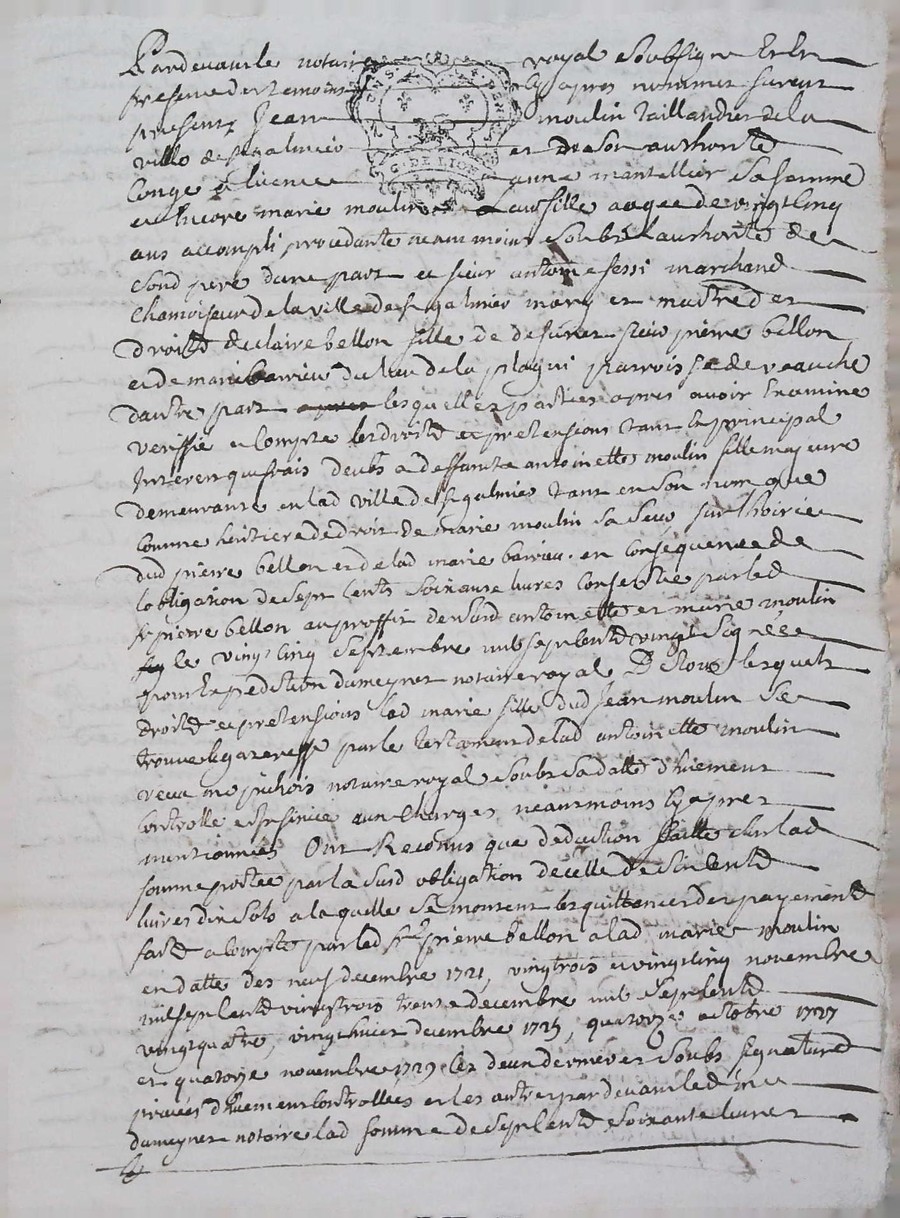 Pardevant le notaire royal soubsigne et en
presence des temoins cy apres nommes furent
presents Jean moulin taillandier de la
ville de st galmier et de son authorite
conge & licence anne mantellier sa femme
et encore marie moulin leur fille aagee de vingt cinq
ans accompli procedante neanmoins soubs lauthorite de
sond pere dune part et sieur antoine fessi marchand
chamoiseur de la ville de st galmier mary et maitre des
droitd de claire bellon fille de defunct sieur pierre bellon
et de marie barrieu du lieu de la plagni parroisse de veauche
dautre part lesquelles parties apres avoir examine
veriffie et compte les droitd et pretensions tant en principal
interest que frais deubs a deffuncte antoinette moulin fille mayeure
demeurante en lad ville de st galmier tant en son nom que
comme heritiere de droit de marie moulin sa seur sur lhoirie
dud pierre bellon et de lad marie barrieu en consequence de
lobligation de sept cents soixante livres consentie par led
sr pierre bellon au proffit desd antoinette et marie moulin
le vingt cinq septembre mil sept centd vingt signée
pour expedition dumeynet notaire royal Des tous lesquels
droitd et pretensions lad marie fille dud Jean moulin se
trouve legataresse par le testament de lad antoinette moulin
receu me pichois notaire royal soubs sa datte d'huement
controlle et insinué aux charges neanmoins cy apres
mentionnées Ont Reconus que deduction faitte sur lad
somme portée par la susd obligation de celle de six centd
livres dix sols a laquelle se montent les quittances des payementd
faitd a compte par led sr pierre bellon a lad marie moulin
en datte des neuf decembre 1721, vingt trois et vingt cinq novembre
mil sept centd vingt trois trente decembre mil sept centd
vingt quatre, vingt huict decembre 1725, quatorze octobre 1727
et quatorze novembre 1729 les deux derniéres soubs signatured
privées d'huement controllees et les autres pardevant led me
dumeynet notaire lad somme de sept centd soixante livres